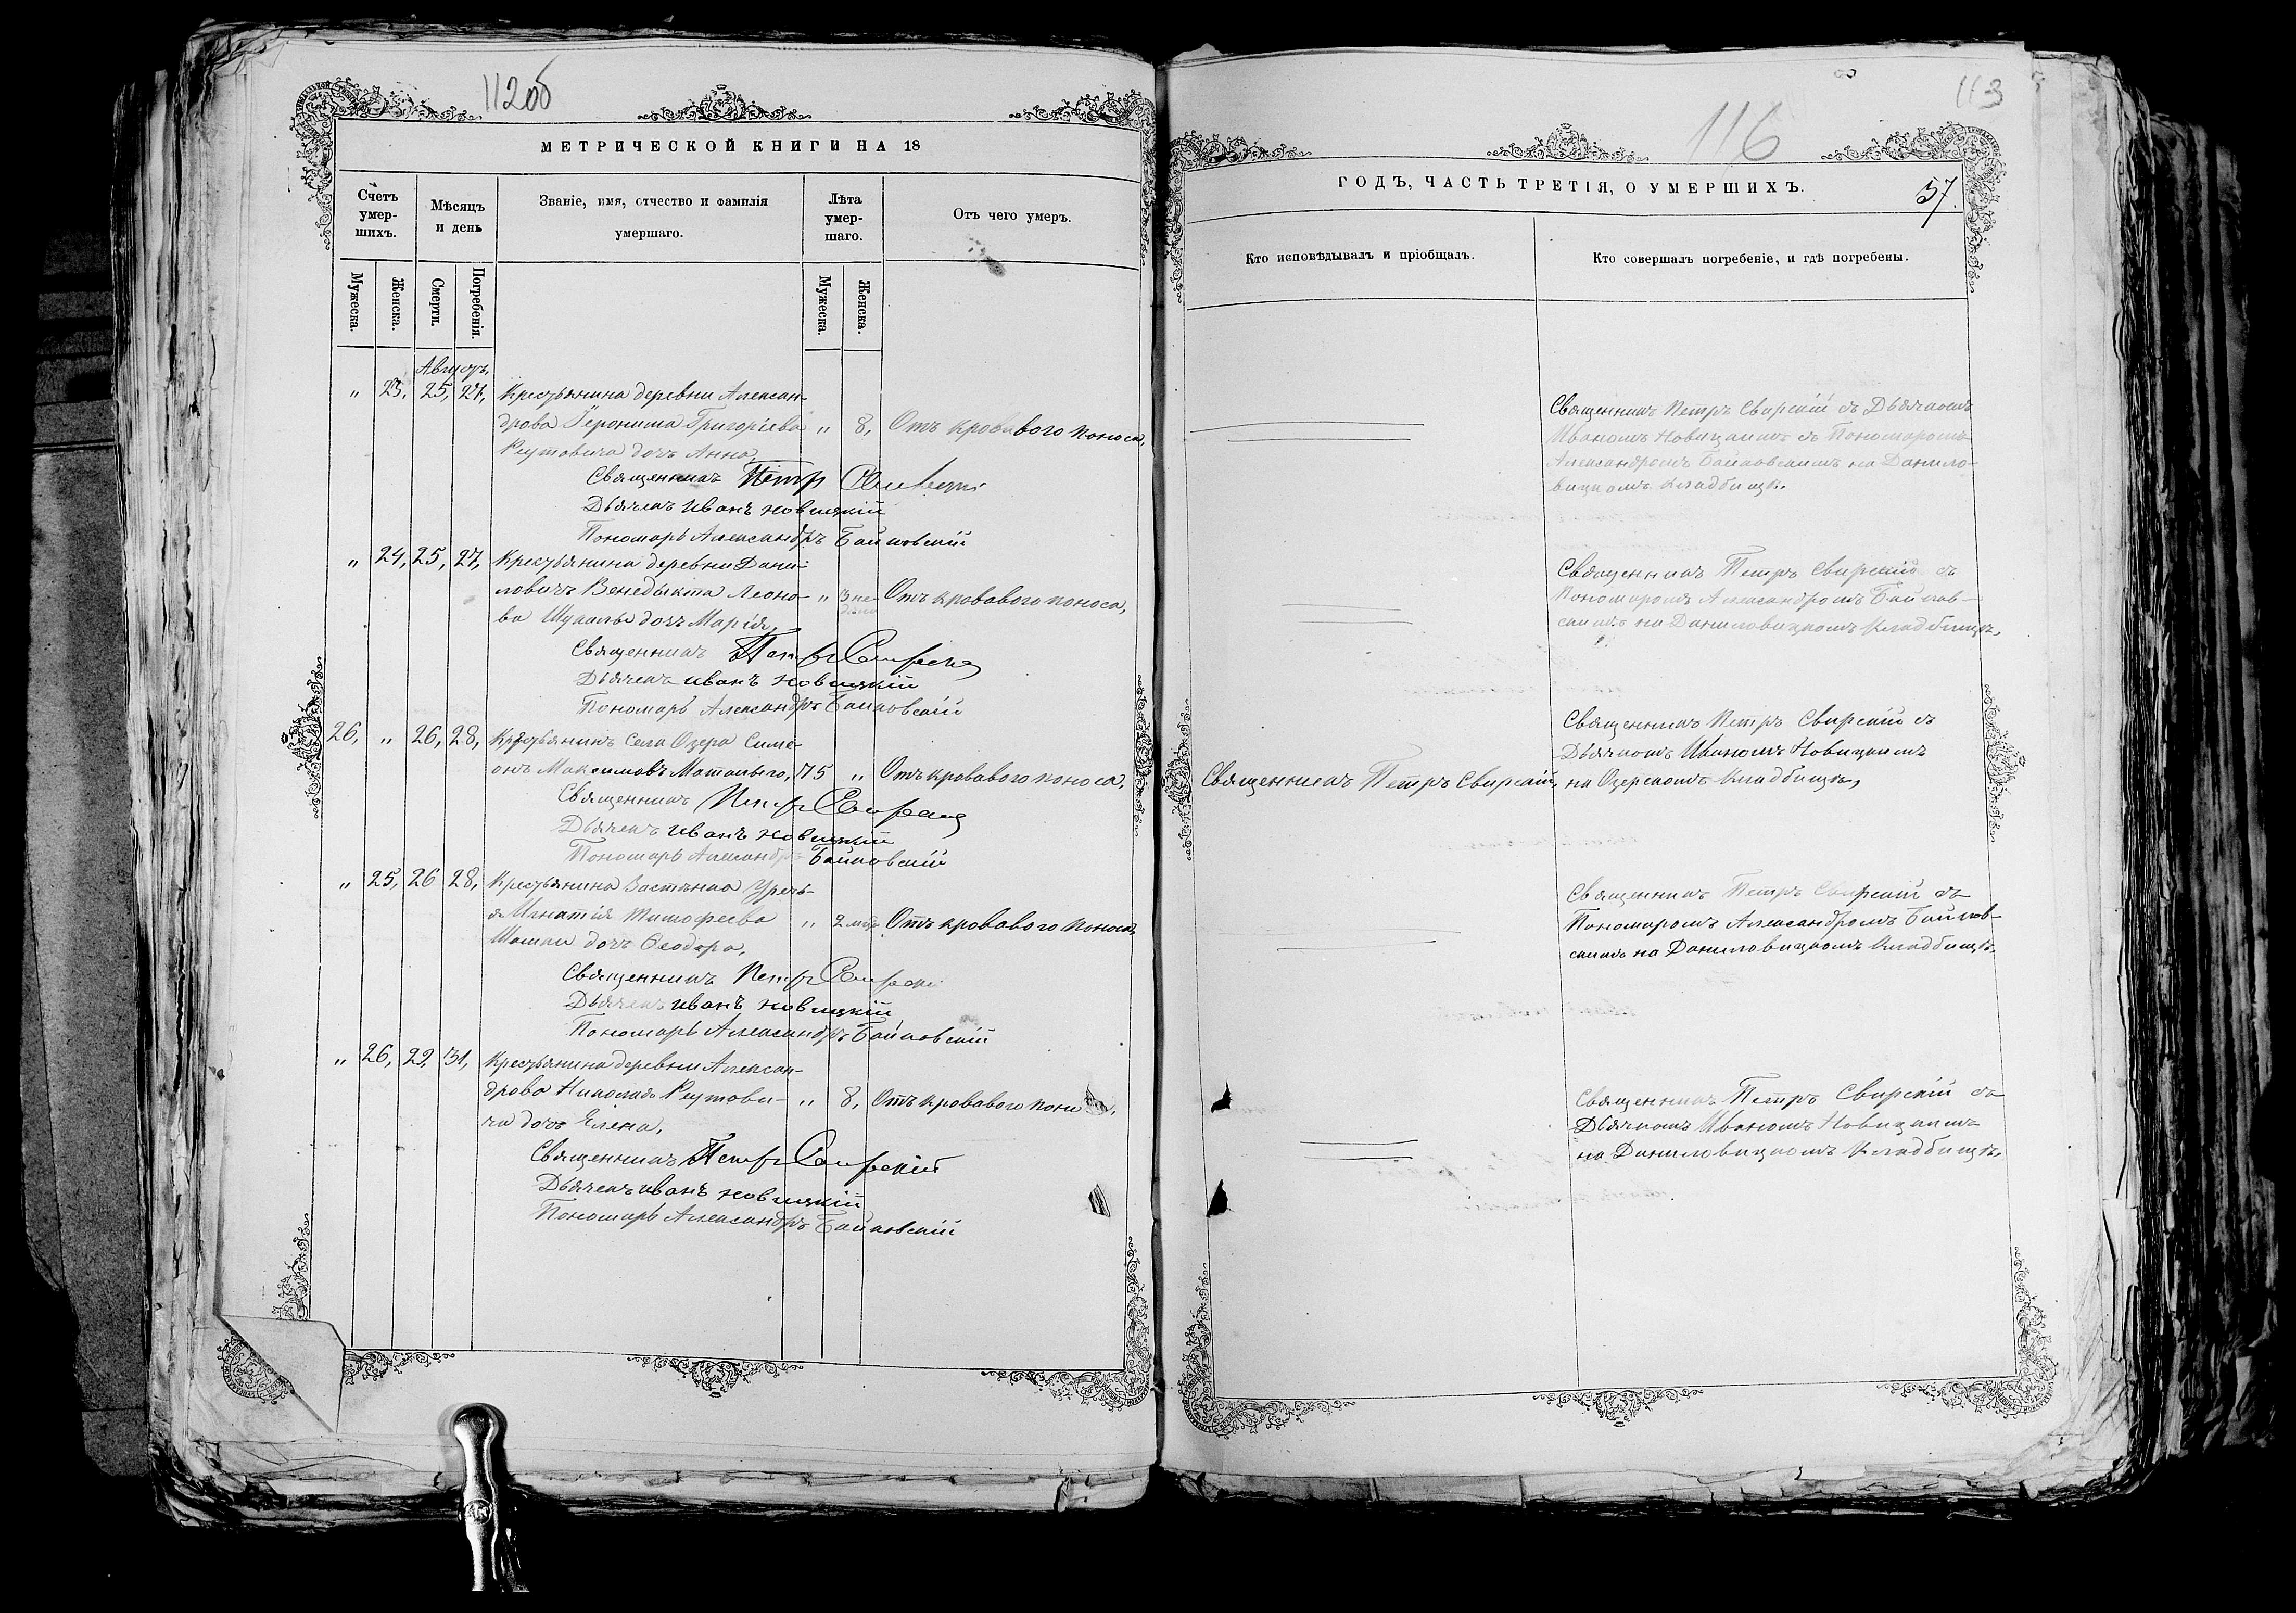 112об
МЕТРИЧЕСКОЙ КНИГИ НА 18
Счетъ умер-шихъ.
Мѣсяцъ и день
Званіе, имя, отчество и фамилія умершаго.
Лѣта умер-шаго.
Отъ чего умеръ.
Мужеска.
Женска.
Смерти.
Погребенія.
Мужеска.
Женска.
Августъ.
„ 23, 25, 27, Крестьянина деревни Алексан-
дрова Іеронима Григоріева „ 8, Отъ кроваваго поноса,
Реутовича дочь Анна,
Священникъ Петръ Свирскій
Дьячекъ Иванъ Новицкій
Пономарь Александръ Байковскій
„ 24, 25, 27, Крестьянина деревни Дани-
ловичъ Венедыкта Леоно- „ 3 не-дели Отъ кровавого поноса,
ва Шукалы дочь Марія,
Священникъ Петръ Свирскій
Дьячекъ Иванъ Новицкій
Пономарь Александръ Байковскій
26, „ 26, 28, Крестьянинъ села Озера Симе-
онъ Максимовъ 75 „ Отъ кровавого поноса,
Священникъ Петръ Свирскій
Дьячекъ Иванъ Новицкій
Пономарь Александръ Байковскій
„ 25, 26 28, Крестьянина Застѣнка Уречь-
я Игнатія Тимофеева „ 2 мѣс Отъ кровавого поноса,
дочь Ѳеодора,
Священникъ Петръ Свирскій
Дьячекъ Иванъ Новицкій
Пономарь Александръ Байковскій
„ 26, 29, 31, Крестьянина деревни Алексан-
дрова Николая Реутови- „ 8, Отъ кровавого поноса,
ча дочь Елена,
Священникъ Петръ Свирскій
Дьячекъ Иванъ Новицкій
Пономарь Александръ Байковскій
113
116
ГОДЪ, ЧАСТЬ ТРЕТІЯ, О УМЕРШИХЪ.
57.
Кто исповѣдывалъ и пріобщалъ.
Кто совершалъ погребеніе, и гдѣ погребены.
Священникъ Петръ Свирскій съ Дьячкомъ
Иваномъ Новицкимъ съ Пономаромъ
Александромъ Байковскимъ на Данило-
вицкомъ кладбищѣ.
Священникъ Петръ Свирскій съ
Пономаромъ Александромъ Байков-
скимъ на Даниловицкомъ кладбищѣ,
Священникъ Петръ Свирскій съ
Дьячкомъ Иваномъ Новицкимъ
Священникъ Петръ Свирскій, на Озерскомъ кладбищѣ,
Священникъ Петръ Свирскій съ
Пономаромъ Александромъ Байков-
скимъ на Даниловицкомъ кладбищѣ,
Священникъ Петръ Свирскій съ
Дьячкомъ Иваномъ Новицкимъ
на Даниловицкомъ кладбищѣ,